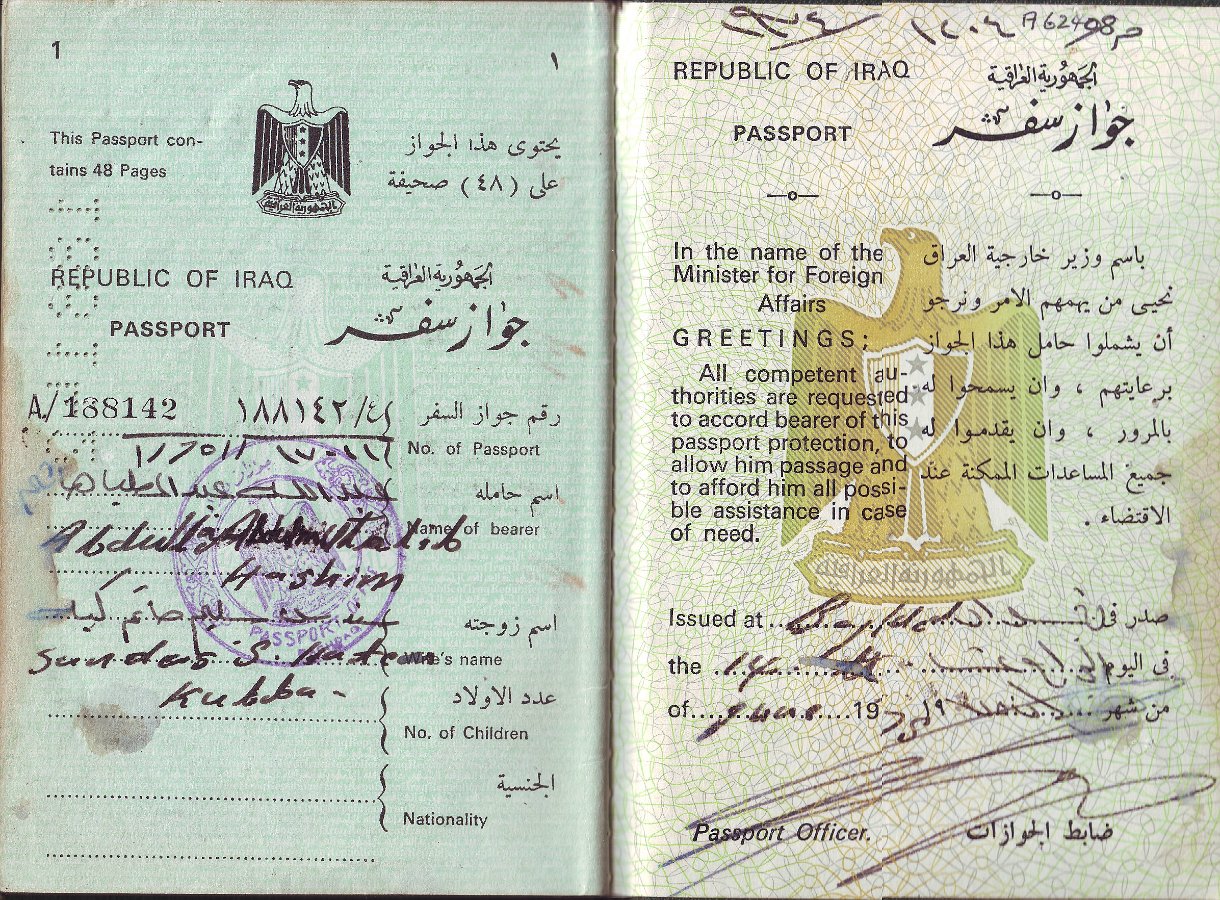 1
١
This Passport con-
tains 48 Pages
يحتوى هذا الجواز
على (٤٨) صحيفة
الجمهورية العراقية
REPUBLIC OF IRAQ
الجمهورية العراقية
PASSPORT
جواز سفر
A/188142
١٨٨١٤٢/٤
رقم جواز السفر
No. of Passport
اسم حامله
Name of bearer
Abdulla Abdulmuttalib
Hashim
اسم زوجته
Wife's name
Sundas S. Hatem
Kubba -
PASSPORT
عدد الاولاد
No. of Children
الجنسية
Nationality
A62498
REPUBLIC OF IRAQ
الجمهورية العراقية
PASSPORT
جواز سفر
In the name of the
Minister for Foreign
Affairs
GREETINGS;
All competent au-
thorities are requested
to accord bearer of this
passport protection, to
allow him passage and
to afford him all possi-
ble assistance in case
of need.
باسم وزير خارجية العراق
نحيى من يهمهم الامر ونرجو
أن يشملوا حامل هذا الجواز
برعايتهم ، وان يسمحوا له
بالمرور ، وان يقدموا له
جميع المساعدات الممكنة عند
الاقتضاء .
الجمهورية العراقية
Issued at
صدر في
the 14
في اليوم
of June 19
من شهر
Passport Officer.
ضابط الجوازات